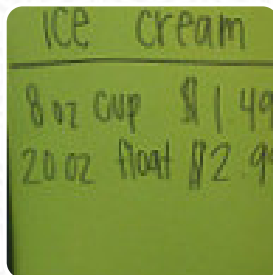 ice cream
8 oz cup $1 49
20 oz float $2.9